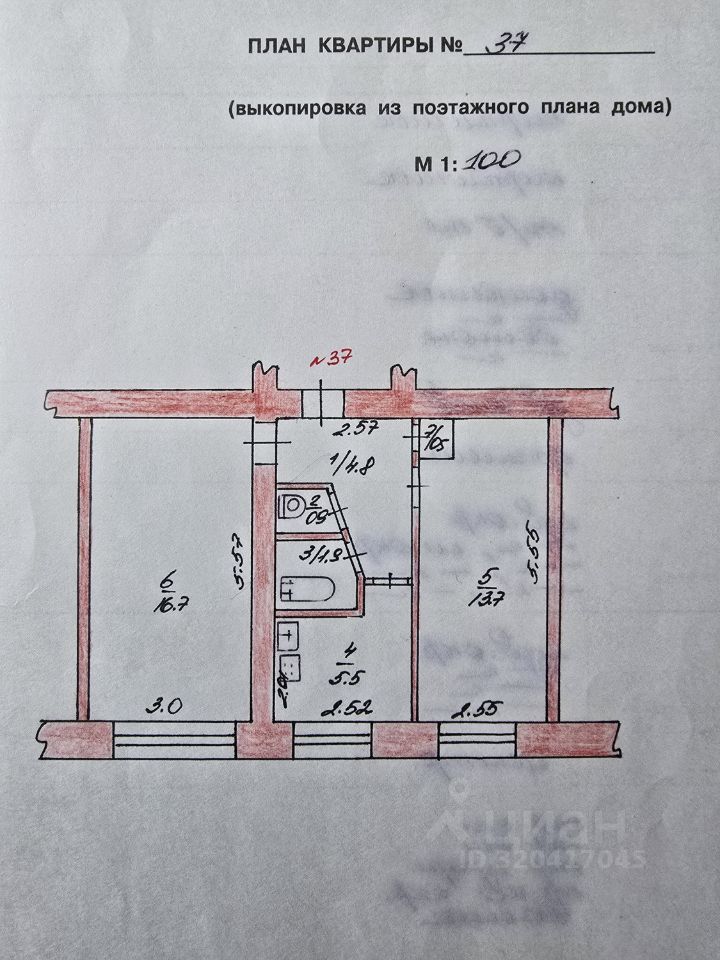 ПЛАН КВАРТИРЫ № 37
(выкопировка из поэтажного плана дома)
М 1: 100
№37
2.57
7/05
1/4.8
2/09
3/1.9
5.57
5.55
6/16.7
5/13.7
4/5.5
3.0
2.52
2.55
циан
ID 320417045